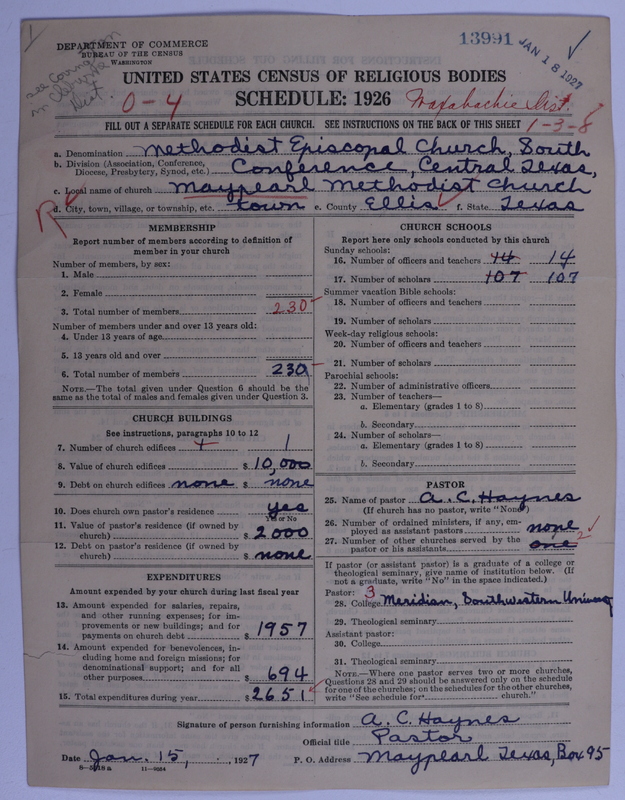 1
DEPARTMENT OF COMMERCE
BUREAU OF THE CENSUS
WASHINGTON
13991 JAN 18 1927
see
in
Dist.
UNITED STATES CENSUS OF RELIGIOUS BODIES
0-4 SCHEDULE: 1926 Waxahachie Dist.
FILL OUT A SEPARATE SCHEDULE FOR EACH CHURCH. SEE INSTRUCTIONS ON THE BACK OF THIS SHEET 1-3-8
a. Denomination Methodist Episcopal Church, South
b. Division (Association, Conference, Diocese, Presbytery, Synod, etc.) Conference, Central Texas,
c. Local name of church Maypearl Methodist Church
R d. City, town, village, or township, etc. town e. County Ellis f. State Texas
MEMBERSHIP
Report number of members according to definition of
member in your church
Number of members, by sex:
1. Male
2. Female
3. Total number of members 230
Number of members under and over 13 years old:
4. Under 13 years of age
5. 13 years old and over
6. Total number of members 230
NOTE.—The total given under Question 6 should be the
same as the total of males and females given under Question 3.
CHURCH BUILDINGS
See instructions, paragraphs 10 to 12
7. Number of church edifices 1 1
8. Value of church edifices $ 10,000
9. Debt on church edifices none $ none
10. Does church own pastor's residence yes
Yes or No
11. Value of pastor's residence (if owned by
church) $ 2000
12. Debt on pastor's residence (if owned by
church) $ none
EXPENDITURES
Amount expended by your church during last fiscal year
13. Amount expended for salaries, repairs,
and other running expenses; for im-
provements or new buildings; and for
payments on church debt $ 1957
14. Amount expended for benevolences, in-
cluding home and foreign missions; for
denominational support; and for all
other purposes $ 694
15. Total expenditures during year $ 2651
CHURCH SCHOOLS
Report here only schools conducted by this church
Sunday schools:
16. Number of officers and teachers 14 14
17. Number of scholars 107 107
Summer vacation Bible schools:
18. Number of officers and teachers
19. Number of scholars
Week-day religious schools:
20. Number of officers and teachers
21. Number of scholars
Parochial schools:
22. Number of administrative officers
23. Number of teachers—
a. Elementary (grades 1 to 8)
b. Secondary
24. Number of scholars—
a. Elementary (grades 1 to 8)
b. Secondary
PASTOR
25. Name of pastor A. C. Haynes
(If church has no pastor, write "None")
26. Number of ordained ministers, if any, em-
ployed as assistant pastors none
27. Number of other churches served by the
pastor or his assistants one 2
If pastor (or assistant pastor) is a graduate of a college or
theological seminary, give name of institution below. (If
not a graduate, write "No" in the space indicated.)
Pastor: 3
28. College Meridian, Southwestern University
29. Theological seminary
Assistant pastor:
30. College
31. Theological seminary
NOTE.—Where one pastor serves two or more churches,
Questions 28 and 29 should be answered only on the schedule
for one of the churches; on the schedules for the other churches,
write "See schedule for church."
Signature of person furnishing information A. C. Haynes
Official title Pastor
Date Jan. 15, , 1927 P. O. Address Maypearl Texas, Box 95